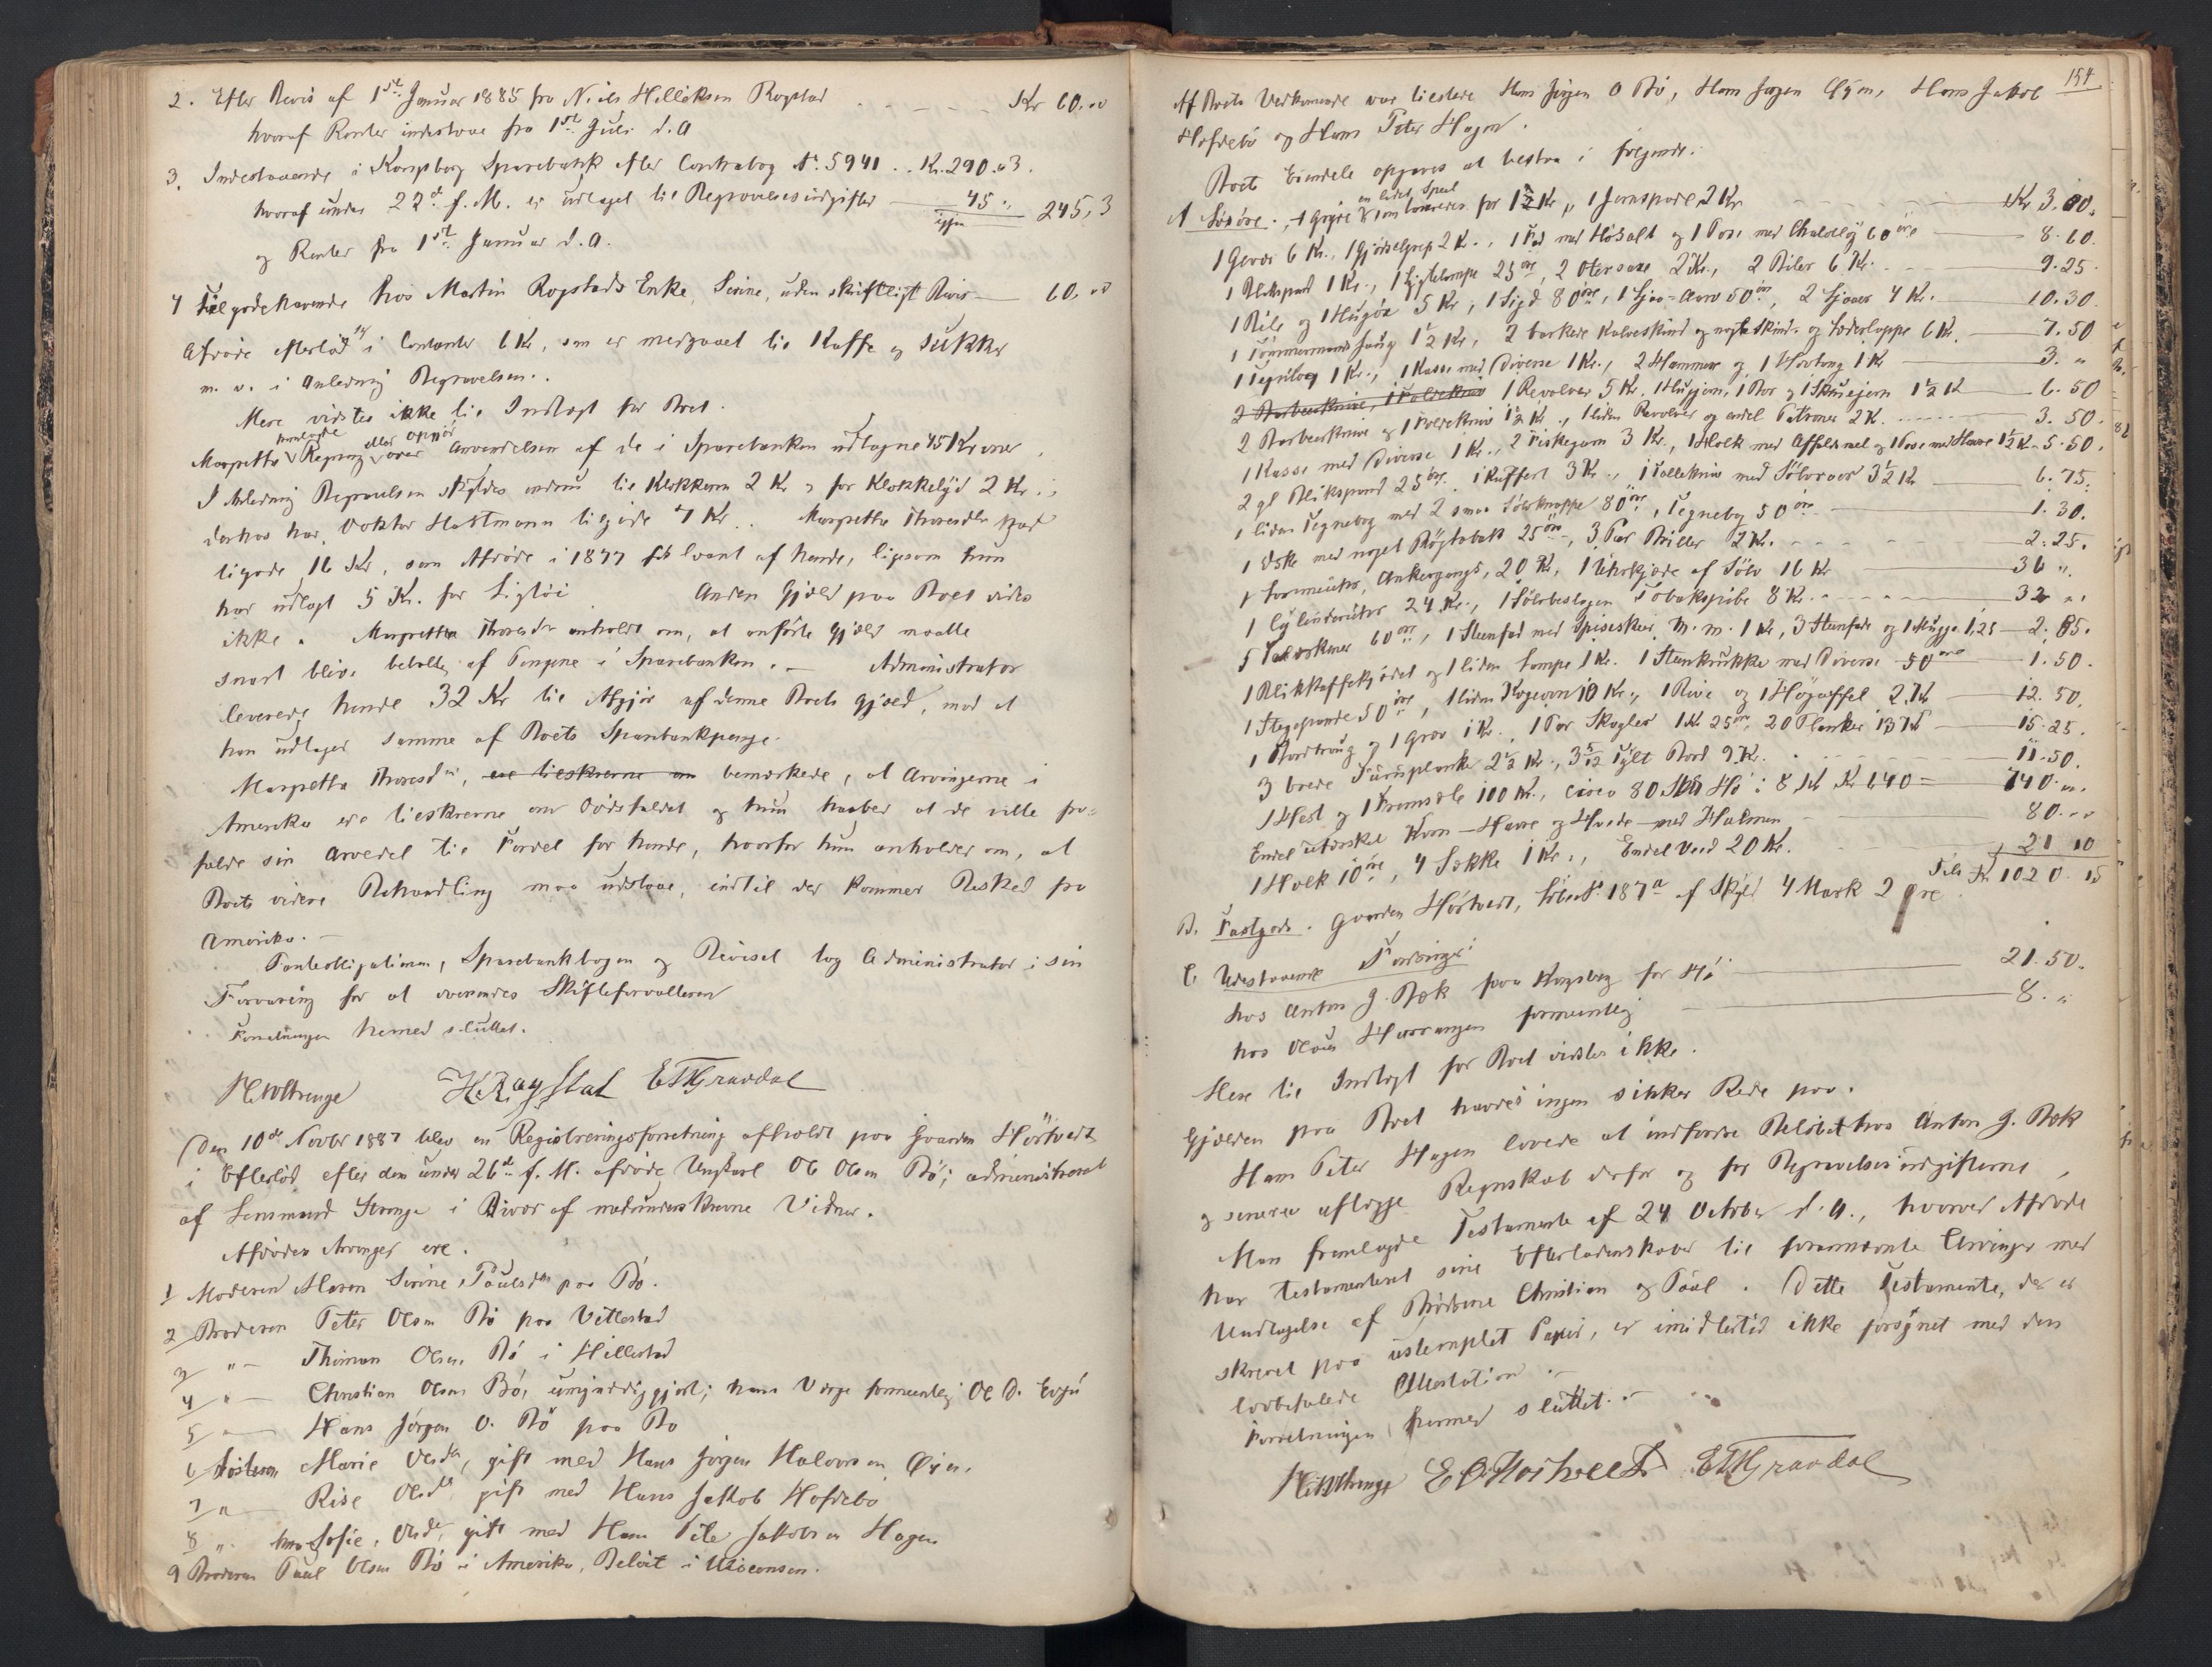 2. Efter Bevis af 1ste Januar 1885 fra Niels Helliksen Rogstad - - - - Kr 60.00
hvoraf Renter indestaae fra 1ste Juli d.A
3. Indestaaende i Kongsberg Sparebank efter Contrabog No. 5941 .. Kr. 290.03.
hvoraf under 22de f. M. er udtaget til Begravelsesudgifter — 45 „ igjen 245,3
og Renter fra 1ste Januar d.A.
4 Tilgodehavende hos Martin Rogstads Enke, Sirine, uden skriftligt Bevis — 60,00
Afdøde efterlod i Contanter 6 Kr, som er medgaaet til Kaffe og Sukker
m. v. i Anledning Begravelsen.
Mere vidstes ikke til Indtægt for Boet.
Margrethe Regning over Anvendelsen af de i Sparebanken udtagne 45 Kroner
I Anledning Begravelsen skyldes endnu til Klokkeren 2 Kr og for Klokkelyd 2 Kr.;
derhos har Doktor Hattmann tilgode 7 Kr.. Margrethe Thoresdtr har
tilgode 16 Kr, som Afdøde i 1877 fik laant af hende, ligesom hun
har udlagt 5 Kr. for Ligtøi. Anden Gjæld paa Boet vides
ikke. Margrethe Thoresdtr anholdt om, at anførte Gjæld maatte
snart blive betalt af Pengene i Sparebanken. — Administrator
leverede hende 32 Kr til Afgjør af denne Boets Gjæld, mod at
han udtager samme af Boets Sparebankpenge.
Margrethe Thoresdtr, ere tilskrevne om bemærkede, at Arvingerne i
Amerika ere tilskrevne om Dødsfaldet og hun haaber at de ville fra-
falde sin Arvedel til Fordel for hende, hvorfor hun anholder om, at
Boets videre Behandling maa udstaae, indtil der kommer Besked fra
Amerika. —
Panteobligationen, Sparebankbogen og Beviset tog Administrator i sin
Forvaring for at oversendes Skifteforvalteren
Forretningen hermed sluttet.
H. Ragstad ETHGravdal
Den 10de Novbr 1887 blev en Registreringsforretning afholdt paa Gaarden Hostvedt
i Efterlod efter den under 26de f. M. afdøde Ungkarl Ole Olsen Bø; administreret
af Lensmand Strenge i Overvær af medunderskrevne Vidner.
Afdødes Arvinger ere.
1 Moderen Maren Sirine Paulsdtr paa Bø.
2 Broderen Peter Olsen Bø paa Vittestad
3 " — Thoman Olsen Bø i Hillestad
4 " — Christian Olsen Bø, umyndiggjort; hans Værge formentlig Ole D. Evju
5 " — Hans Jørgen O. Bø paa Bø
6 Søsteren Marie Olsdtr, gift med Hans Jørgen Halvorsen Øyen.
7 " — Rise Olsdtr gift med Hans Jakob Hofdebø
8 " Sofie, Olsdtr, gift med Hans Peter Jakobsen Hagen
9 Broderen Paul Olsen Bø i Amerika, Beloit i Wisconsen.
154
Af Boets Vedkommende var tilstede Hans Jørgen O Bø, Hans Jørgen Øyen, Hans Jakob
Hofdebø og Hans Peter Hagen.
Boets Eiendele opgaves at bestaa i følgende:
A Løsøre. for 1½ Kr „ 1 Jernspade 2 Kr - - - Kr 3.50.
1 Gevær 6 Kr., 1 Gjødselgrep 2 Kr., 1 Fad med Høsalt og 1 Pose med 60 øre — 8.60.
1 Blikspand 1 Kr., 1 Lyglampe 25 øre, 2 Otersaxe 2 Kr., 2 Biler 6 Kr. — 9.25
1 Bile og 1 Hugøx 5 Kr, 1 Sigd 80 øre, 1 Ljaa-Aarv 50 øre, 2 Ljaaer 4 Kr. — 10.30.
1 Tømmermandssaug 1½ Kr, 2 barkede Kalveskind og noget Skind- og Læderlappe 6 Kr. — 7.50
1 1 Kr., 1 Kasse med Diverse 1 Kr., 2 Hammere og 1 Hovtang 1 Kr — 3. „
2 Barbeerknive, 1 Foldekniv 1 Revolver 5 Kr. 1 Hugjern, 1 Bor og 1 Skruejern 1½ Kr — 6.50
2 Barbeerknive og 1 Foldekniv 1½ Kr., 1 liden Revolver og endel Patroner 2 K. - - - 3.50.
1 Kasse med Diverse 1 Kr., 2 Fiskegarn 3 Kr., 1 Holk med Affaldsmel og 1 Pose med Havre 1½ K. 5.50.
2 gl Blikspand 25 øre. 1 Kuffert 3 Kr., 1 Tollekniv med Sølvroer 3½ Kr — 6.75.
1 liden Tegnebog med 2 smaa Sølvknappe 80 øre, Tegnebog 50 øre — 1.30.
1 Æske med noget Røgtobak 25 øre, 3 Par Briller 2 Kr. - - - 2.25.
1 Lommeuhr, Ankergangs, 20 Kr, 1 Uhrkjæde af Sølv 16 Kr — 36 „.
1 Cylinderuhr 24 Kr., 1 Sølvbeslagen Tobakspibe 8 Kr. - - - 32 „.
5 Talerkener 60 øre, 1 Steenfad med Spiseskeer m.m. 1 Kr, 3 Steenfade og 1 Mugge 1,25 — 2.85.
1 Blikkaffekjedel og 1 liden Lampe 1 Kr. 1 Steenkrukke med Diverse 50 øre — 1.50.
1 Stegepande 50 øre, 1 liden Kogeovn 10 Kr., 1 Rive og 1 Høgaffel 2 Kr — 12.50,
1 Brødtraug og 1 Grev 1 Kr., 1 Par Skagler 1 Kr 25 øre, 20 Planker 13 Kr — 15.25.
3 brede Furuplanker 2½ Kr., 3 5/12 Tylt Bord 9 Kr. - - - 11.50.
1 Hest og 1 100 Kr., circa 80 Sk℔ Hø à 8 Kr Kr 640 = 740. „.
Endel utærsket Korn — Havre og Hvede — med Halmen - - - 80. „
1 Holk 10 øre, 4 Sække 1 Kr., Endel Veed 20 Kr. - - - 21 10
Tils. Kr 1020.15
B. Fastgods. Gaarden Hostvedt, Løbe No. 187a af Skyld 4 Mark 2 øre
C Udestaaende Fordringer:
hos Anton J. Bæk paa Kongsberg for Hø — 21.50.
hos Olaus formentlig — 8. „
Mere til Indtægt for Boet vidstes ikke.
Gjælden paa Boet havdes ingen sikker Rede paa.
Hans Peter Hagen lovede at indfordre Beløbet hos Anton J. Bæk
og senere aflægge Regnskab derfor og for Begravelsesudgifterne,
Man fremlagde Testamente af 24 October d. A., hvorved Afdøde
har testamenteret sine Efterladenskaber til forannævnte Arvinger med
Undtagelse af Brødrene Christian og Paul. Dette Testamente, der er
skrevet paa ustemplet Papir, er imidlertid ikke forsynet med den
lovbefalede Attestation. —
Forretningen hermed sluttet. —
ETHGravdal